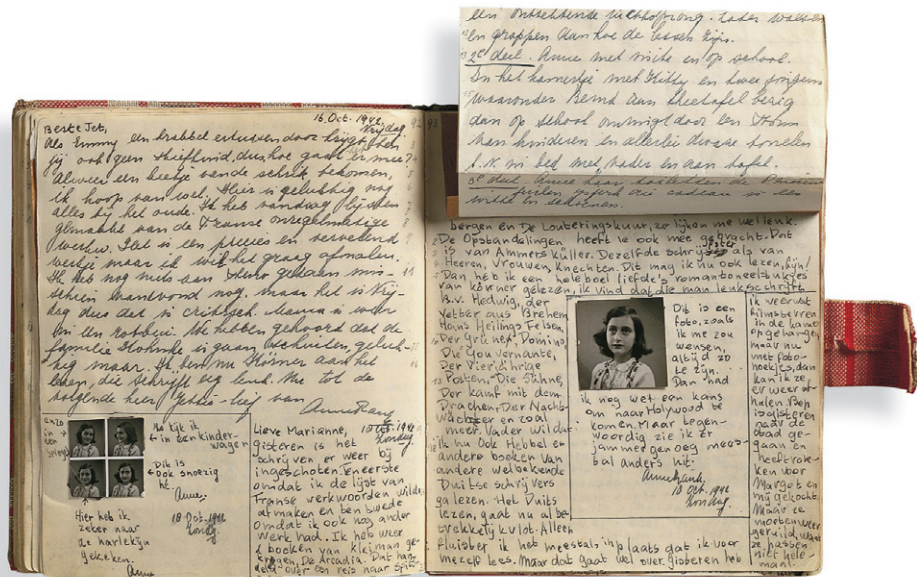 16 Oct. 1942
Vrijdag
Beste Jet,
Als Emmy een krabbel ertusschen door krijgt, ben
jij ook geen stiefkind, dus hoe gaat er mee?
Alweer een beetje van de schrik bekomen,
ik hoop van wel. Hier is gelukkig nog
alles bij het oude. Ik heb vandaag lijsten
gemaakt van de Franse onregelmatige
werkw. Het is een precies en vervelend
werkje maar ik wil het graag afmaken.
Ik heb nog niets aan steno gedaan mis-
schien vanavond nog, maar het is Vrij-
dag dus dat is critisch. Mama is weer
in de We hebben gehoord dat de
familie is gaan schuilen, geluk-
kig maar. Ik ben nu Körner aan het
lezen, die schrijft erg leuk. Nu tot de
volgende keer Jetje-lief van
Anne Frank
En zo
in een
Zo kijk ik
in een kinder-
wagen
Dit is
ook snoezig
hè.
Anne.
Hier heb ik
zeker naar
de harlekijn
gekeken
Anne
18 Oct. 1942
Zondag
Lieve Marianne, 10 Oct. 1942
Zondag
gisteren is het
schrijven er weer bij
ingeschoten. Eneerste
omdat ik de lijst van
Franse werkwoorden wilde
afmaken en ten twede
omdat ik ook nog ander
werk had. Ik heb weer
2 boeken van Kleiman ge-
kregen, De Arcadia. Dat han-
deld over een reis naar Spits-
92 93
een ontzettende luchtsprong. Lader
en grappen dan hoe de lessen zijn.
2e deel. Anne met visite en op school.
In het kamertje met Kitty en twee jongens
waaronder Bernd aan theetafel bezig
dan op school omringd door een
van kinderen en allerlei dwaze tonelen
b.v. in bed met vader en aan tafel.
3e deel. Anne haar toiletten de
cadeau
witte en schoenen.
bergen en De Louteringskuur, ze lijken me wel leuk.
De Opstandelingen heeft ie ook mee gebracht. Dat
is van Ammers Küller. Dezelfde schrijfster als van
Heeren, Vrouwen, Knechten. Dit mag ik nu ook lezen, fijn!
Dan heb ik een heleboel liefde's romantoneelstukjes
van Körner gelezen, ik vind dat die man leuk schrijft
B.v. Hedwig, der
Vetter aus Brehem,
Hans Heilings Felsen,
Der Grüne, Domino,
Die Gouvernante,
Der Vierjährige
Posten, Die Sühne,
Der Kampf mit dem
Drachen, Der Nacht-
wächter en zoal
meer. Vader wil dat
ik nu ook Hebbel en
andere boeken van
andere welbekende
Duitse schrijvers
ga lezen. Het Duits
lezen, gaat nu al be-
trekkelijk vlot. Alleen
fluister ik het meestal, inplaats dat ik voor
mezelf lees. Maar dat gaat wel over. gisteren heb
Dit is een
foto, zoals
ik me zou
wensen,
altijd zo
te zijn.
Dan had
ik nog wel een kans
om naar Holywood te
komen. Maar tegen-
woordig zie ik er
jammer genoeg mees-
tal anders uit.
Anne Frank
10 Oct. 1942
Zondag
ik veerust
filmsterren
in de kamer
opgehangen
maar nu
met foto-
hoekjes, dan
kan ik ze
er weer af
halen. Bep
is gisteren
naar de
stad ge-
gaan en
heeft rok-
ken voor
Margot en
mij gekocht.
Maar ze
moeten weer
geruild, want
ze passen
niet hele-
maal.